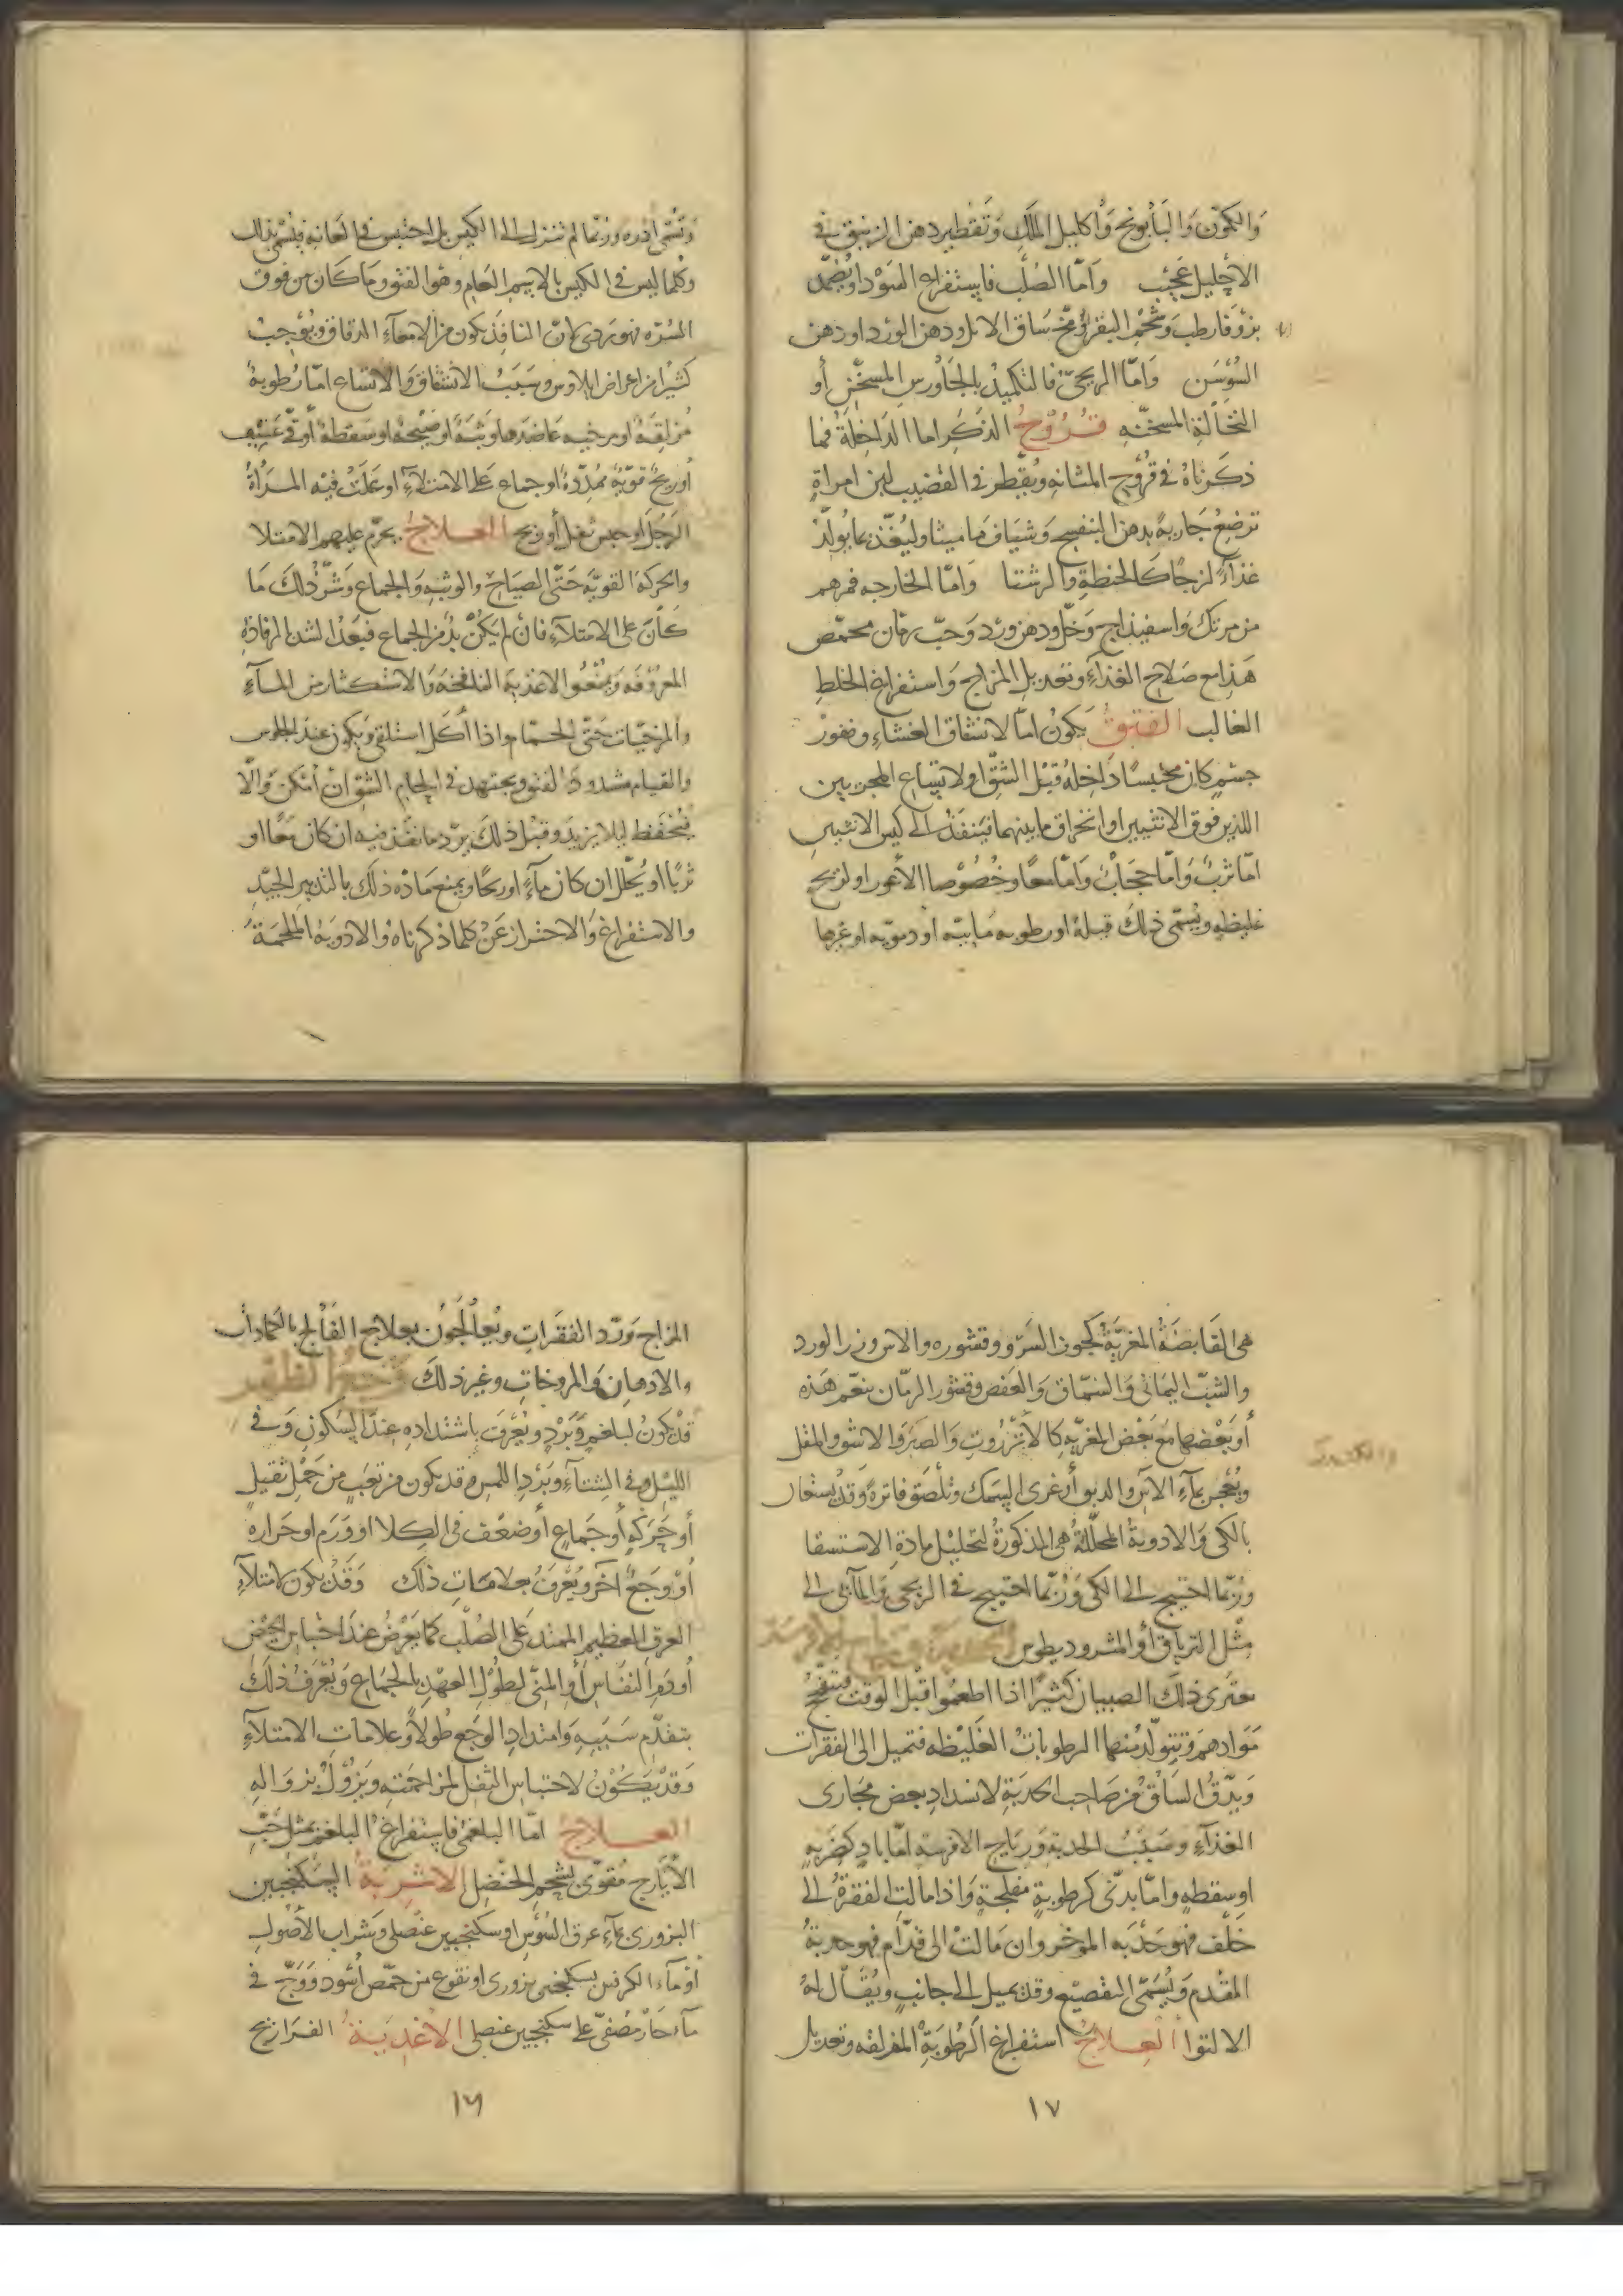 وَالكمّون وَالبَابُونج وَاكليل الملك وَتقطير دهن الزنبق في
الاحليل عجيب وَامّا الصُلب فاستفراغ السَوْدا ويُضمّد
بزوفا رطب وَشحم البقر ومخ سَاق الايل ودهن الورد او دهن
السُوْسَن وَامّا الريحيّ فالتكميد بالجَاوَرس المسخّن أو
النخالة المسخّنه قُرُوْحُ الذكَر اما الداخلة فما
ذكرناهُ في قرُوح المثانه ويُقطر في القضيب لبن امراةٍ
ترضِعُ جَاريةً بدهن البنفسج وَشياف مَاميثا وليُغذّ بما يُولّدُ
غذاءً لزجًا كالحنطة والرشتا وَامّا الخارجه فمرهم
من مرتك وَاسفيذاج وَخلّ ودهن ورد وَحبّ رمّان محمّص
هَذا مع صَلاح الغذاءِ وتعديل المزاج وَاستفراغ الخلطِ
الغالب الفتوقُ يَكونُ امّا لانشقاق الغشاءِ ونفوذ
جسْم كان محتبسًا داخلهُ قبْل الشقّ او لاتساع المجريين
اللذين فوق الانثيين او انخراق ما بينهما فينفذ الى كيس الانثيين
امّا ثربٌ وَامّا حجَابٌ وَامّا معًا وخُصُوْصا الأعور او لريح
غليظه ويُسَمّى ذلكَ قيلةً او رطوبه مَائيّه او دمويّه او غيرها
وَتُسَمّى ادره وربّما لم تنزل الى الكيس بل احتبس في العانه فيُسَمّى بذلك
وَكلما ليس في الكيس بالاسم العَام وهُو الفتق ومَا كَان من فوق
السُرّه فهو ردى لانّ النافِذ يكون من الامعَآءِ الدقاق ويُوجبُ
كثيرًا من اعراض ايلاوس وسَبَبُ الانشقاق وَالاتسَاع امّا رُطوبةٌ
مُزلِقَةٌ او مرخيه عَاضدها وَثبَةٌ او صَيْحةٌ او سَقطةٌ أو قيْ عَنيف
أو ريحٌ قويّةٌ مُمَدِّدةٌ او جماع عَلى الامتلآءِ او عَلَتْ فيه المرْأةُ
الرَجُلَ او حبس ثفل أو ريح العلاجُ يحرّم عليهم الامتلا
والحركة القويّة حَتّى الصيَاح والوثبه وَالجماع وَشرُّ ذلكَ مَا
كَانَ على الامتلآءِ فان لم يَكنْ بُدٌ من الجماع فبَعْد الشد بالرفادة
المعرُوْفه وَيمنعُوا الاغذية النافخة وَالاسْتكثار من المآءِ
والمرخيّات حَتّى الحمّام واذا أكل استلقى وَيكون عند الجلوس
والقيام مشدودَ الفتق ويجتهد في الحام الشق انْ أمكن وَالّا
فيحفظ ليلا يزيد وقبْل ذلكَ يردّ ما نفذ فيه ان كان معًا او
ثربًا او يُحلّل ان كان مآءً او ريحًا ويمنع مَادّه ذلكَ بالتدبير الجيّدِ
والاستفراغ وَالاحتراز عَنْ كلما ذكرناهُ والادويةُ الملحمَةُ
هى القَابضَةُ المغرّيَة كجوز السَرْو وقشوره والاس وزر الورد
والشبّ اليمَانى وَالسُمّاق وَالعَفص وقشور الرمّان بنعم هَذه
أو بَعْضها مَع بَعْض المغرّيَه كالأنزرُوت وَالصَبر وَالاشق والمقل
ويُعْجن بمآءِ الاس والدبق أو غرى السمَك وتُلصَق فاترةً وَقدْ يسْتعَان
بالكى وَالادويةُ المحلّلةُ هى المذكورةُ لتحليل مادة الاستسقا
ورُبّما احتيج الى الكى وَرُبّما احتيج في الريحى وَالمآئى الى
مِثل الترياق أو المثروديطوس
يعترى ذلكَ الصبيان كثيرًا اذا اطعمُوا قبْل الوقت فتفجّ
مَوَادهم وَتتولّد منها الرطوباتُ الغَليْظه فتميل الى الفقرات
وَيَدّقُ السَاق من صَاحب الحدبة لانسداد بعض مجَارى
الغذآءِ وسَبَبُ الحدبة وَريَاح الافرسه امّا بادٍ كضربهٍ
او سقطهٍ وامّا بدنى كرطوبةٍ مفلجةٍ وَاذا مالت الفقرةُ الى
خَلْف فهو حَدْبَه المؤخر وان مَالتْ الى قدّام فهو حدبةُ
المقدم وَيُسَمّى التقصيع وقد يميل الى جانبٍ ويُقَال لهُ
الالتوا العِلاجُ استفراغ الرُطُوبَةِ المزلقه وتعديل
المزاج وَرَدّ الفقرَاتِ ويُعَالجُونَ بعلاج الفَالج بالضمادات
والادهان وَالمروخَاتِ وغير ذلكَ وَجَعُ الظهْر
قدْ يكونُ لبلغمٍ وَبَرْدٍ ويُعْرَفُ باشتدادهِ عند السكونِ وَفي
الليْل وفي الشتآءِ وبَرْدِ اللمس وقد يكون من تعَبٍ من حَمْل ثقيلٍ
أو حَرَكهٍ أو جَماعٍ أو ضعف في الكلا او وَرَم او حَراره
أوْ وَجَعٌ آخر ويُعْرَفُ بعلامَاتِ ذلكَ وَقَدْ يكون لامتلآءِ
العرق العظيم الممتد عَلى الصُلب كما يَعْرضُ عند احتباس الحيْض
أو دَمِ النفاس أو المنىّ لطُوْل العهدِ بالجماعِ وَيُعْرَفُ ذلكَ
بتقدّم سَبَبهِ وَامتدادِ الوَجَع طُولاً وَعلامَاتِ الامتلآءِ
وَقَدْ يَكُوْنُ لاحتباس الثفل لمزاحمَته وَيزُوْلُ بزوالهِ
العلاجُ امّا البلغمىُ فاستفراغُ البلغم بمثل حَبِّ
الأيَارج مُقوّى بشحم الحنْضل الاشْربَةُ السكنجبين
البزورى بمآءِ عرق السُوْس او سكنجبين عنصلى وَشراب الأصُولِ
او مآءِ الكرفس بسكنجبين بزورى او نقوع من حمّص أسْود وَوَجّ في
مآءٍ حَارّ مُصَفّى على سكنجبين عنصلى الاغْذيَةُ الفرَاريج
١٧ ١٦